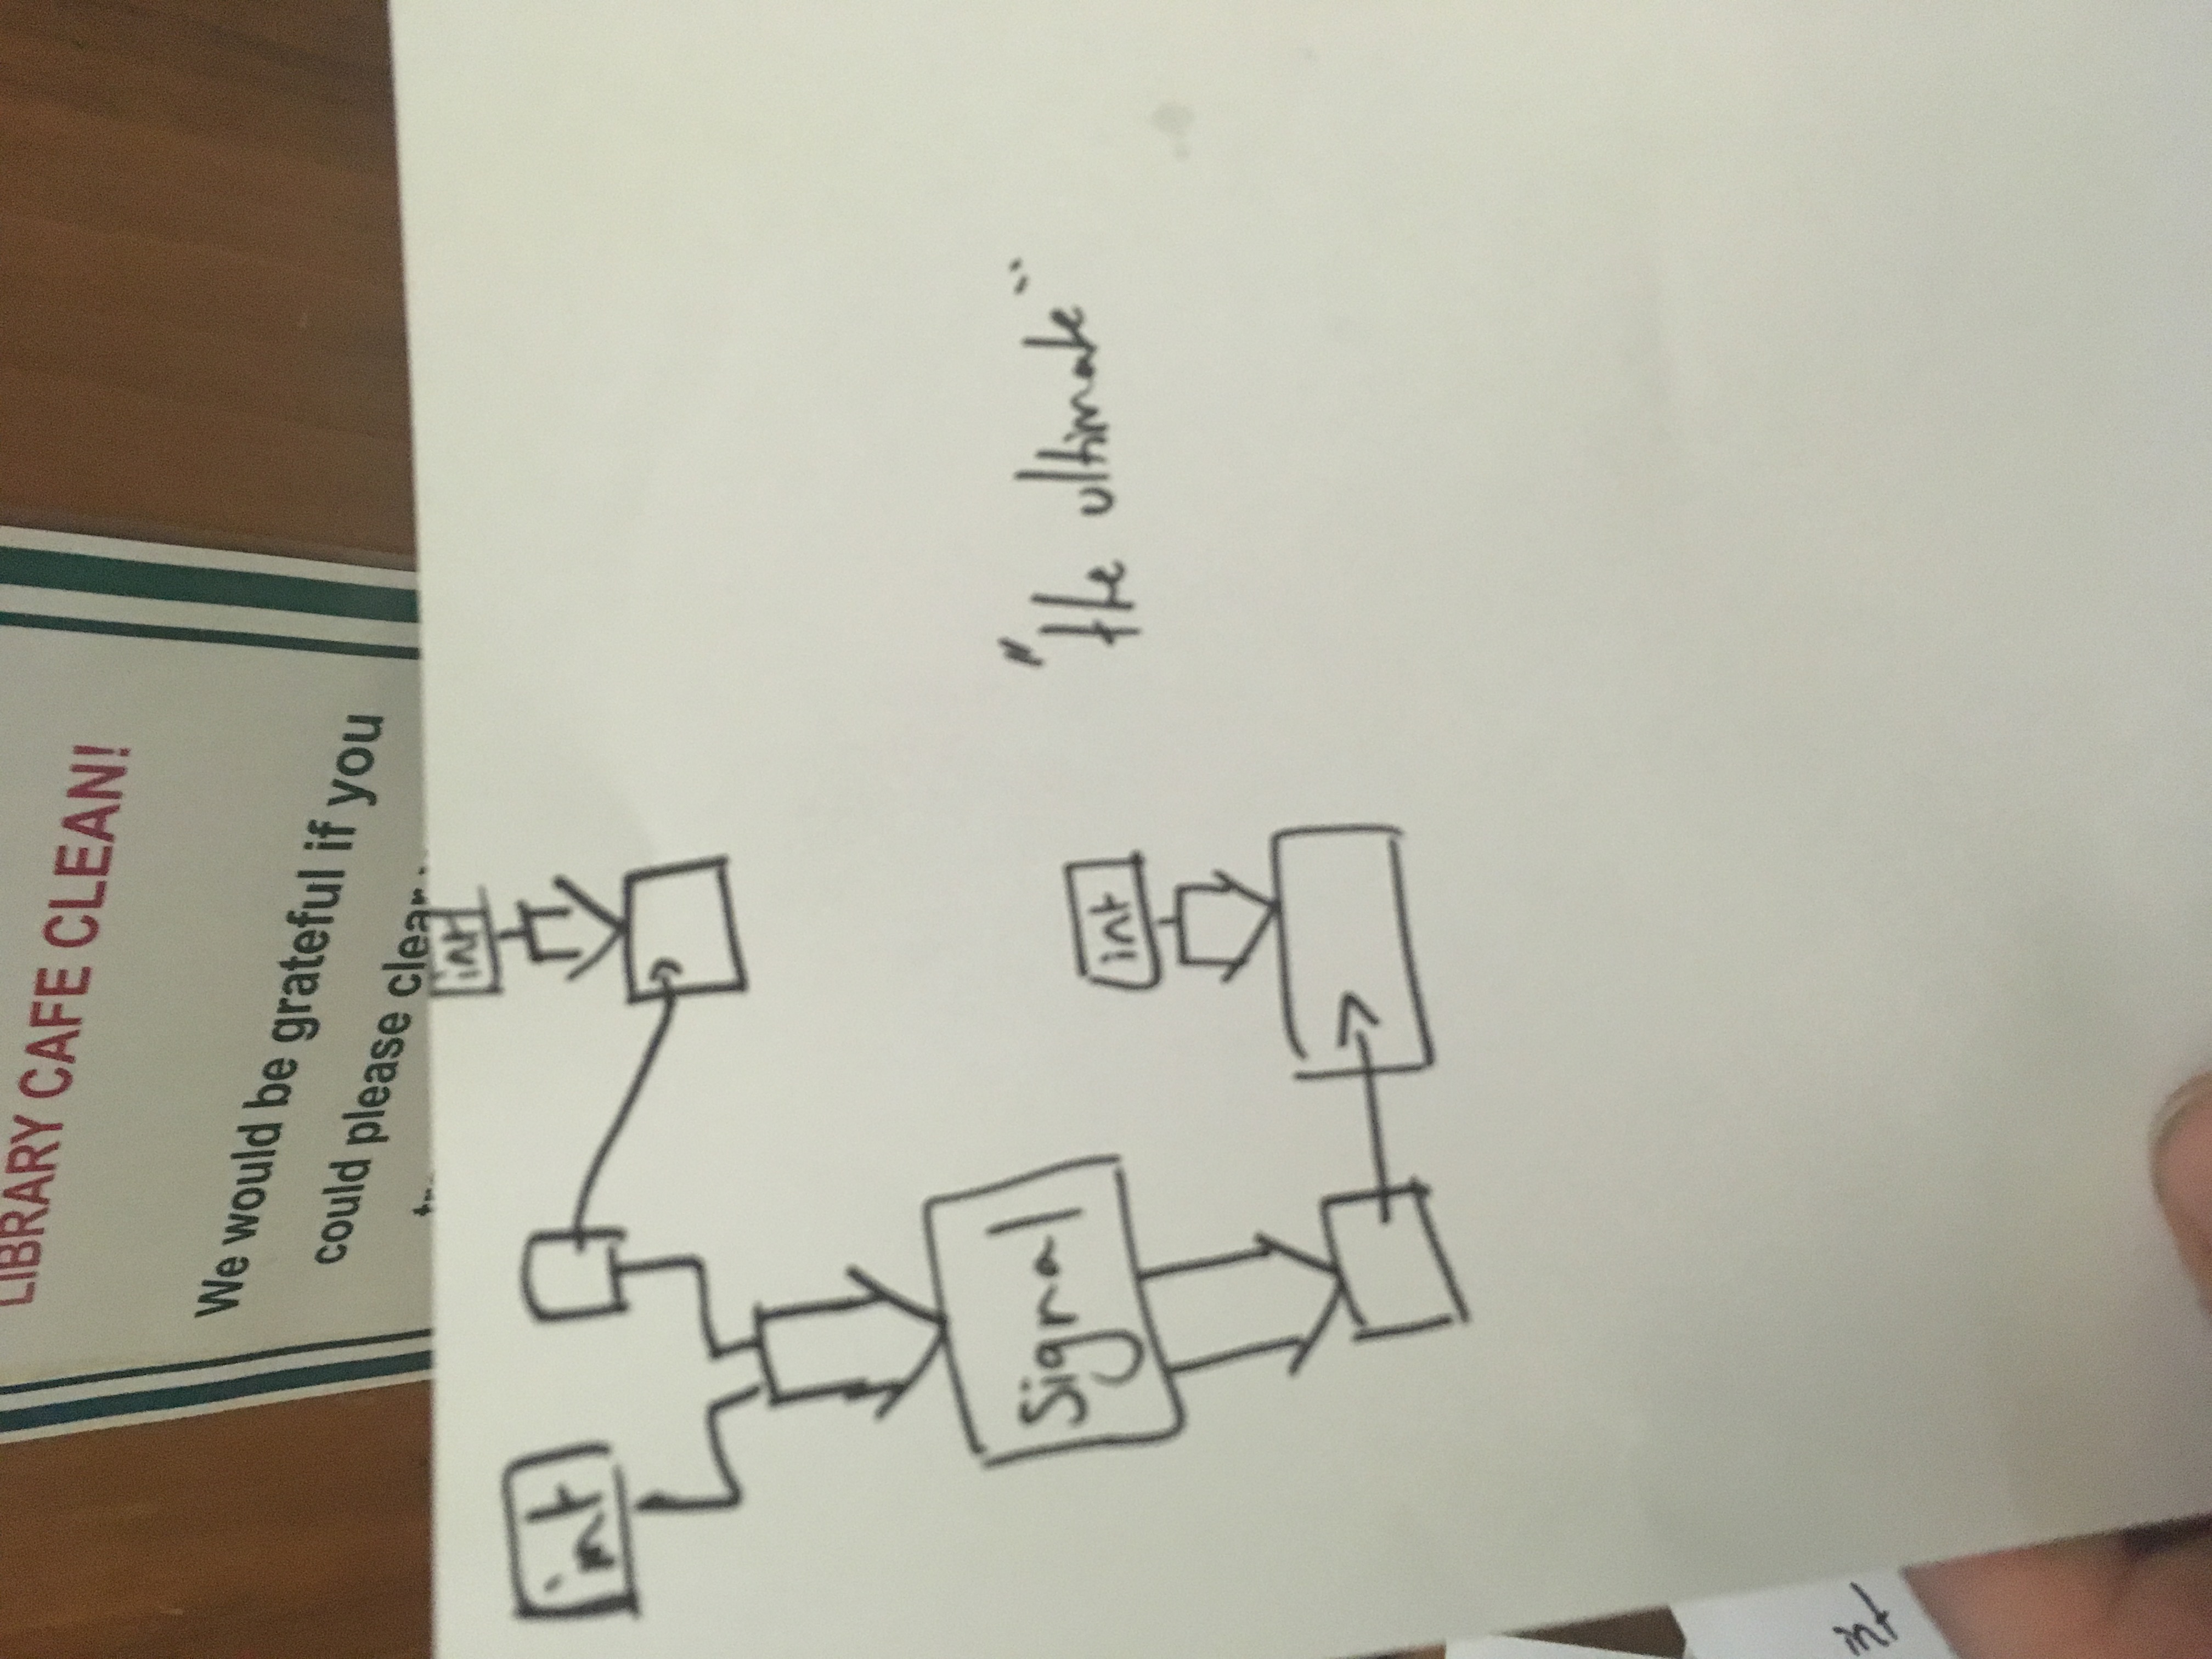 LIBRARY CAFE CLEAN!
We would be grateful if you
could please clear
int
int
Signal
int
"the ultimate"